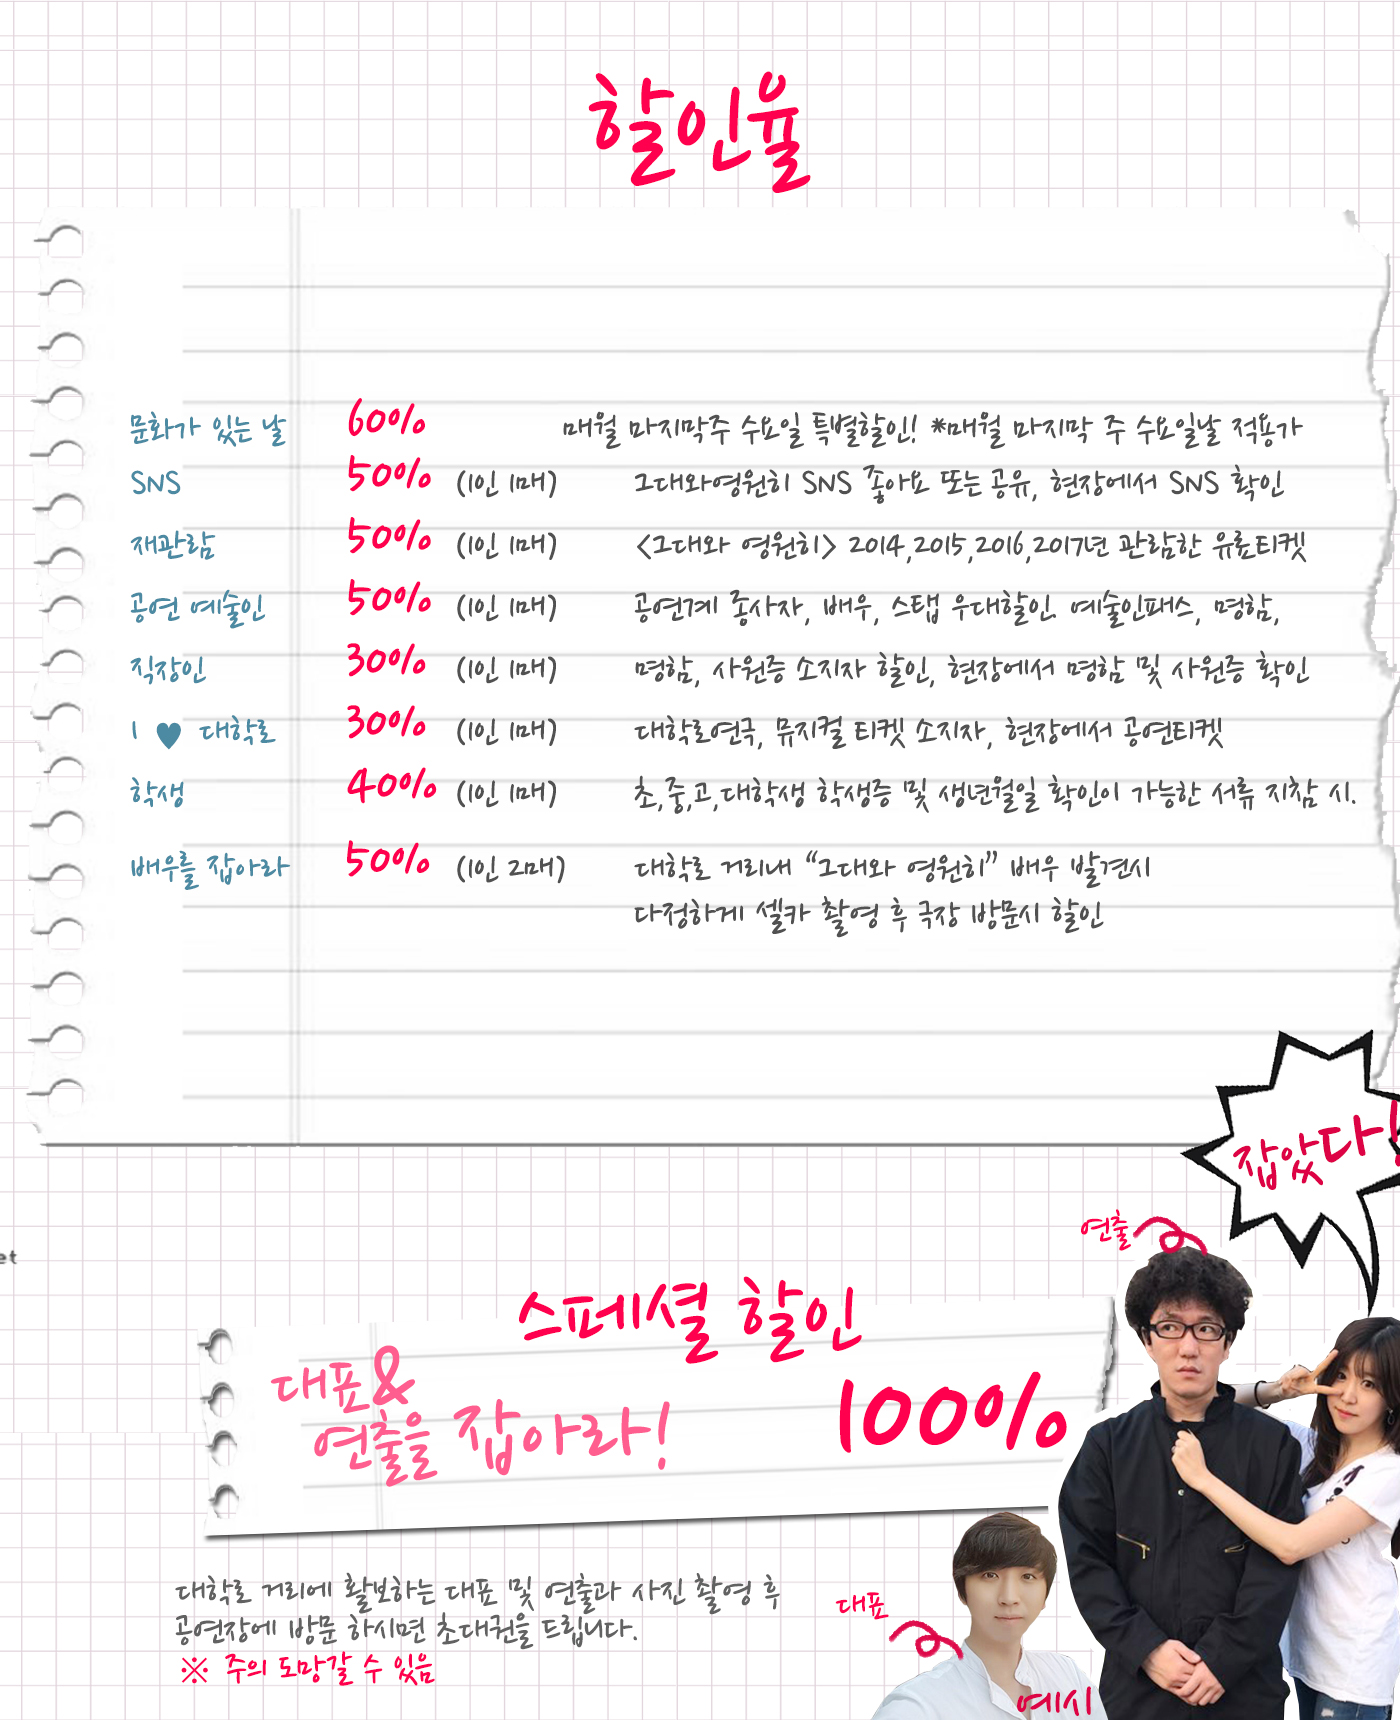 할인율
문화가 있는 날 60% 매월 마지막주 수요일 특별할인! *매월 마지막 주 수요일날 적용가
SNS 50% (1인 1매) 그대와영원히 SNS 좋아요 또는 공유, 현장에서 SNS 확인
재관람 50% (1인 1매) <그대와 영원히> 2014,2015,2016,2017년 관람한 유료티켓
공연 예술인 50% (1인 1매) 공연계 종사자, 배우, 스탭 우대할인. 예술인패스, 명함,
직장인 30% (1인 1매) 명함, 사원증 소지자 할인, 현장에서 명함 및 사원증 확인
I ♥ 대학로 30% (1인 1매) 대학로연극, 뮤지컬 티켓 소지자, 현장에서 공연티켓
학생 40% (1인 1매) 초,중,고,대학생 학생증 및 생년월일 확인이 가능한 서류 지참 시.
배우를 잡아라 50% (1인 2매) 대학로 거리내 “그대와 영원히” 배우 발견시
다정하게 셀카 촬영 후 극장 방문시 할인
잡았다!
연출
et
스페셜 할인
대표&
연출을 잡아라!
100%
대학로 거리에 활보하는 대표 및 연출과 사진 촬영 후
공연장에 방문 하시면 초대권을 드립니다.
※ 주의 도망갈 수 있음
대표
예시